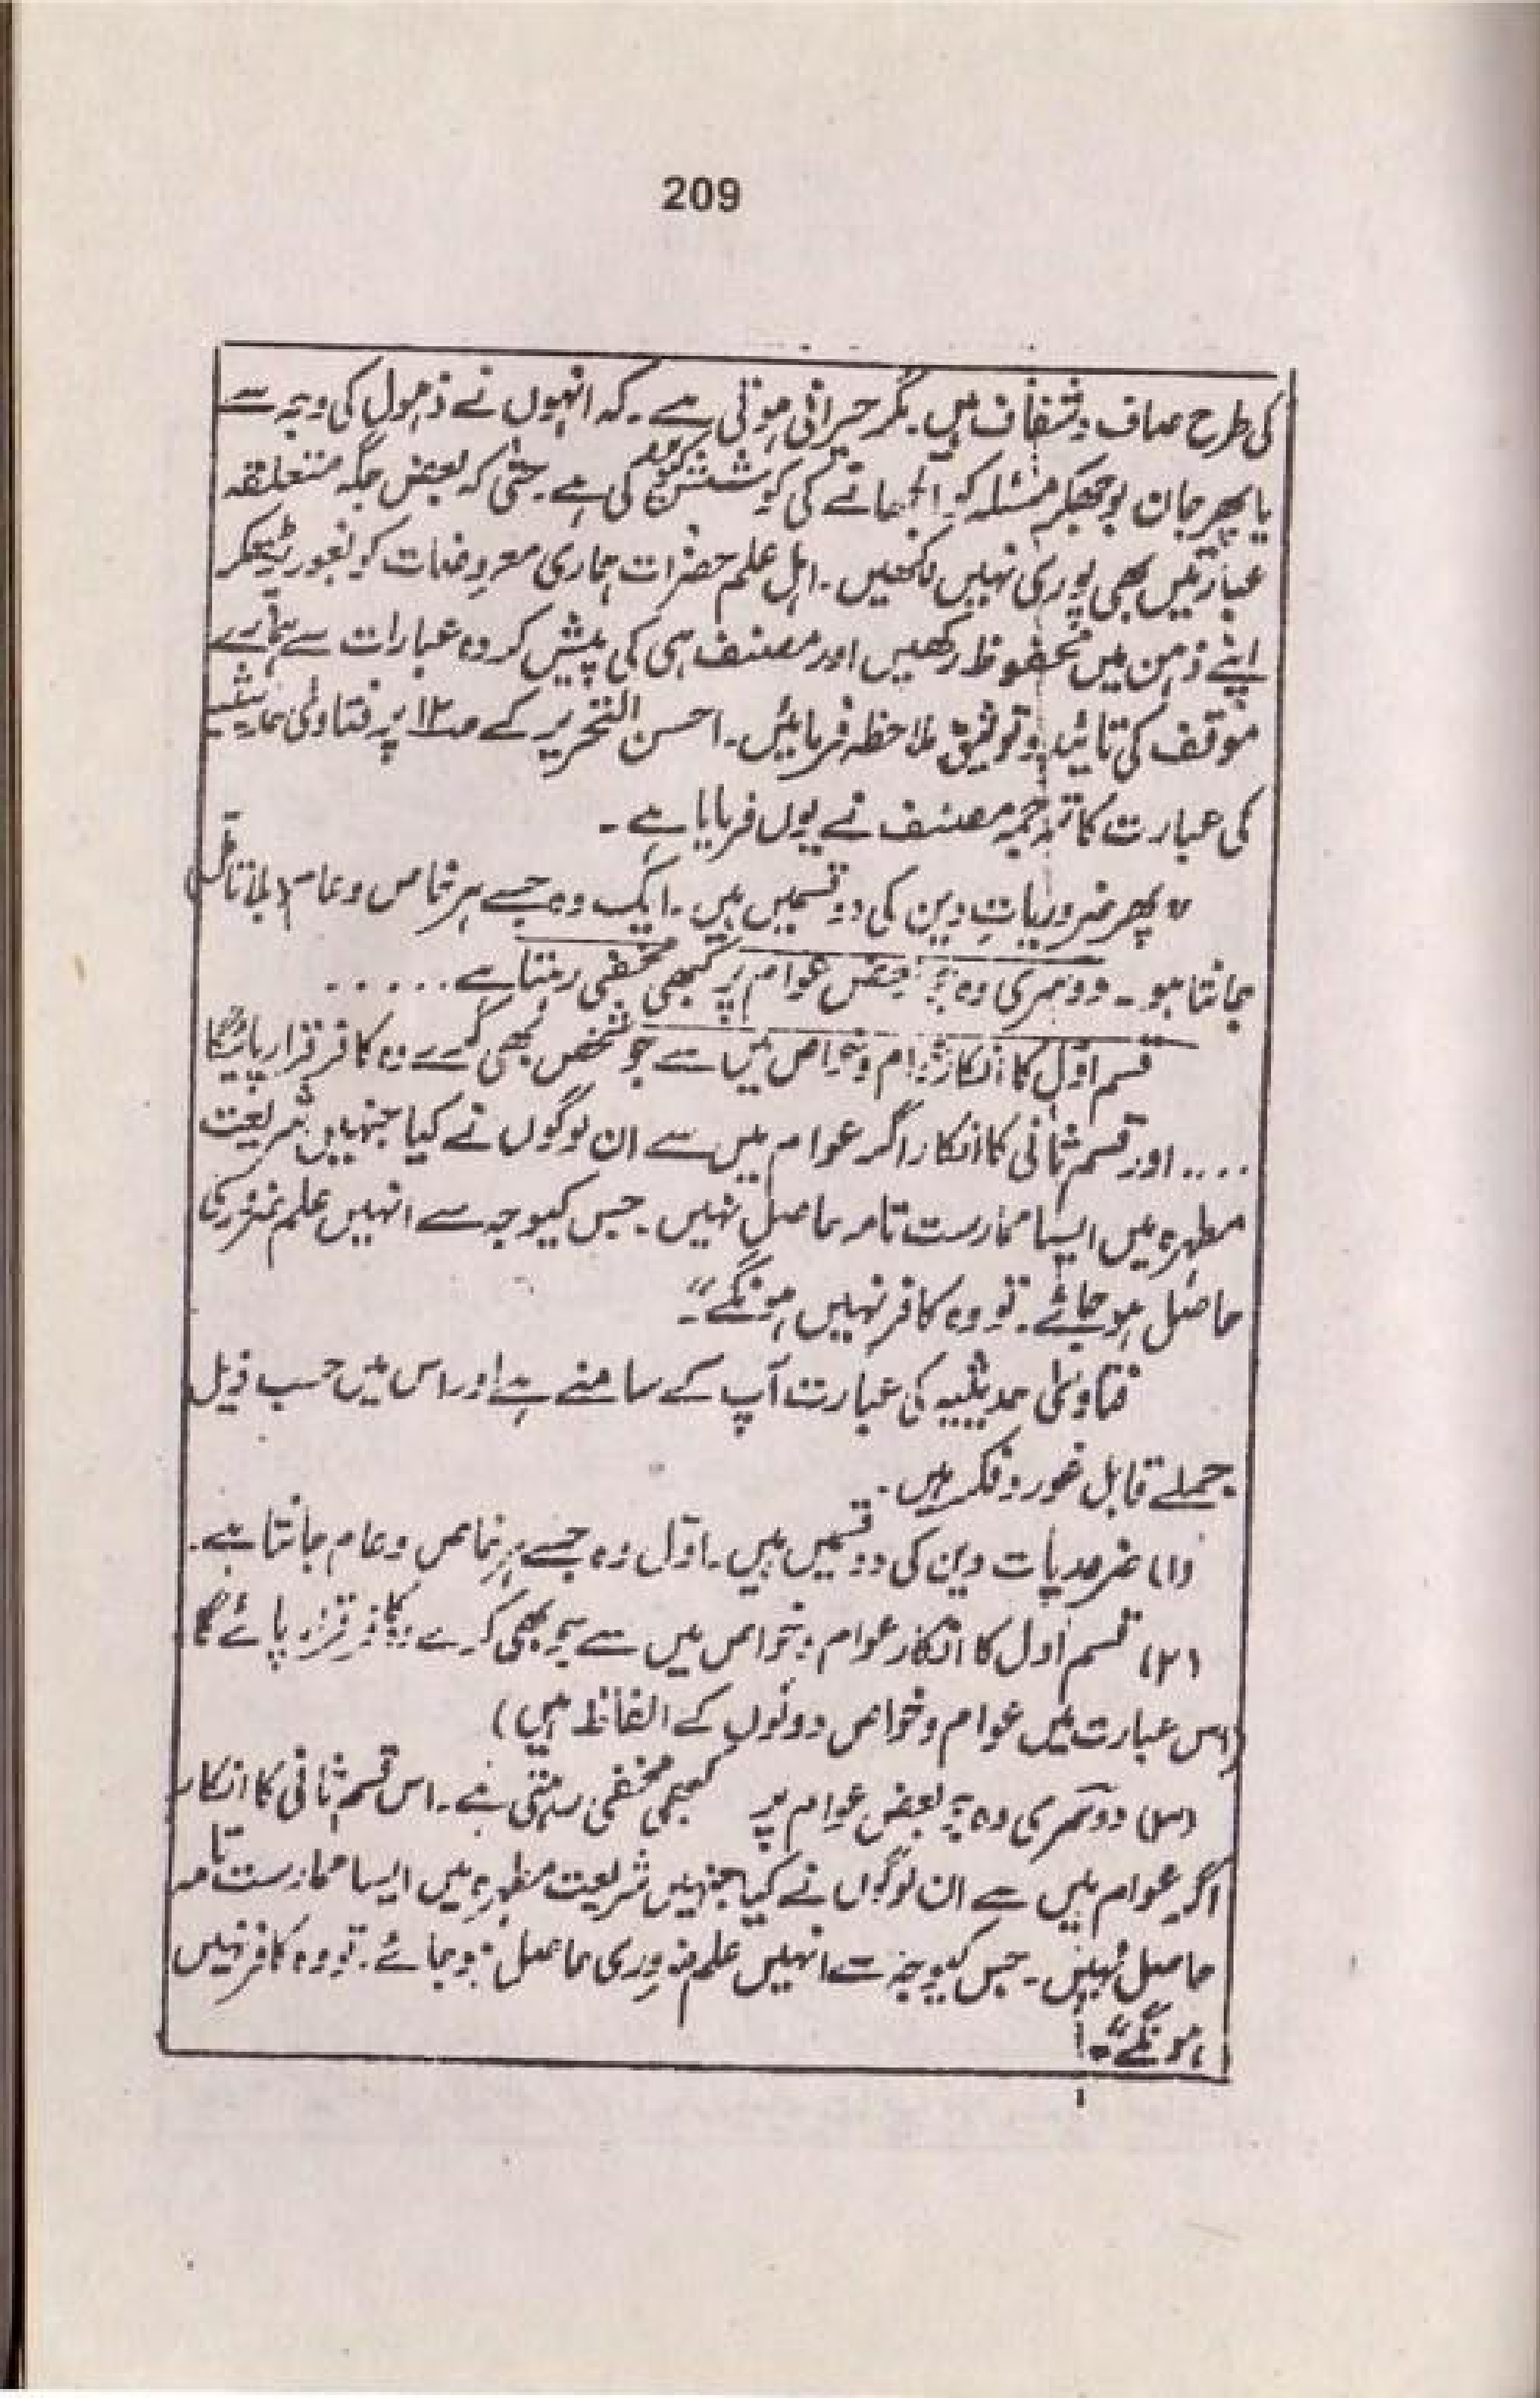 209
کی طرح صاف و شفاف ہیں۔ مگر حیرانی ہوتی ہے۔ کہ انہوں نے ذہول کی وجہ سے
یا پھر جان بوجھکر مسئلہ کو الجھانے کی کوشش کی ہے۔ حتٰی کہ بعض جگہ متعلقہ
عبارتیں بھی پوری نہیں لکھیں۔ اہل علم حضرات ہماری معروضات کو بغور پڑھکر
اپنے ذہن میں محفوظ رکھیں اور مصنف ہی کی پیش کردہ عبارات سے ہمارے
موقف کی تائید و توثیق ملاحظہ فرمائیں۔ احسن التحریر کے صـ۱۲ پر فتاوٰی حدیثیہ
کی عبارت کا ترجمہ مصنف نے یوں فرمایا ہے۔
"پھر ضروریاتِ دین کی دو قسمیں ہیں۔ ایک وہ جسے ہر خاص و عام (بلا تامّل)
جانتا ہو۔ دوسری وہ جو بعض عوام پر کبھی مخفی رہتا ہے......
قسم اوّل کا انکار عوام و خواص میں سے جو شخص بھی کرے وہ کافر قرار پائیگا
.... اور قسم ثانی کا انکار اگر عوام میں سے ان لوگوں نے کیا جنہیں شریعت
مطہرہ میں ایسا ممارست تامہ حاصل نہیں۔ جس کیوجہ سے انہیں علم ضروری
حاصل ہو جائے۔ تو وہ کافر نہیں ہونگے"۔
فتاوٰی حدیثیہ کی عبارت آپ کے سامنے ہے اور اس میں حسب ذیل
جملے قابل غور و فکر ہیں۔
(۱) ضروریات دین کی دو قسمیں ہیں۔ اوّل وہ جسے ہر خاص و عام جانتا ہے۔
(۲) قسم اول کا انکار عوام و خواص میں سے جو بھی کرے وہ کافر قرار پائے گا
(اس عبارت میں عوام و خواص دونوں کے الفاظ ہیں)
(۳) دوسری وہ جو بعض عوام پر کبھی مخفی رہتی ہے۔ اس قسم ثانی کا انکار
اگر عوام میں سے ان لوگوں نے کیا جنہیں شریعت مطہرہ میں ایسا ممارست تامہ
حاصل نہیں۔ جس کیوجہ سے انہیں علم ضروری حاصل ہو جائے۔ تو وہ کافر نہیں
ہونگے"۔